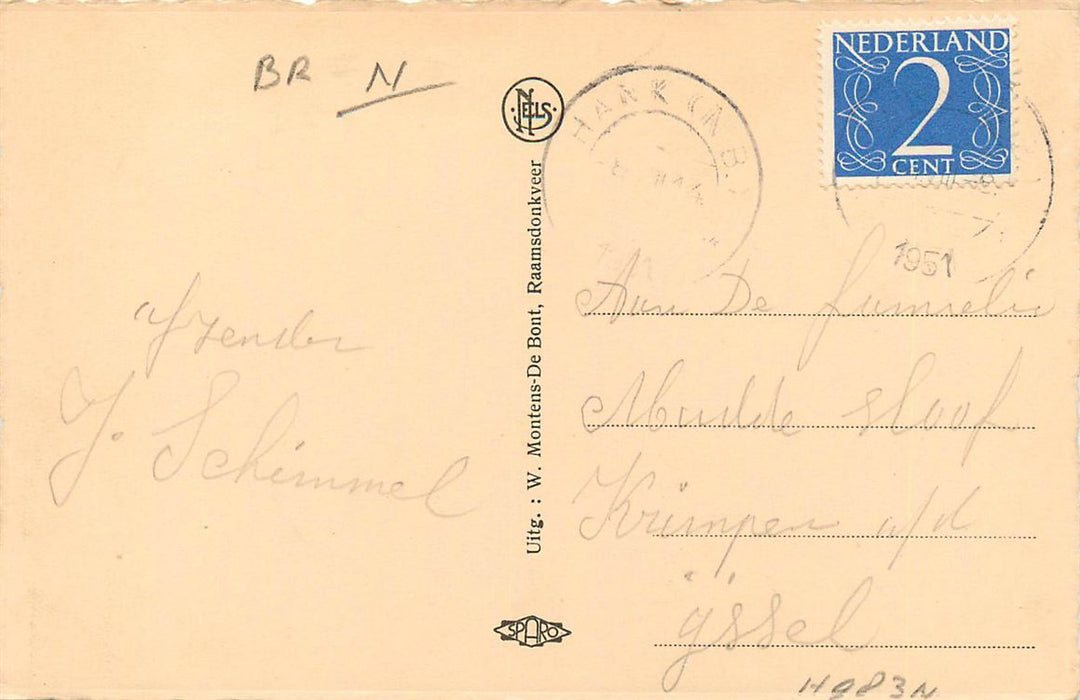 BR N
NELS
HANK (N.B)
NEDERLAND
2
CENT
1951
afzender
J. Schimmel
Uitg. : W. Montens-De Bont, Raamsdonkveer
Aan De familie
Mudde Hoof
Krimpen a/d
ijssel
SPARO
H983N